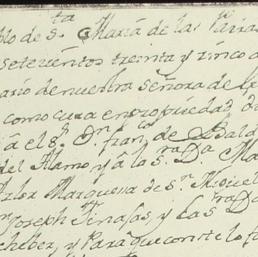 lo de S.ta Maria de las
setecientos treinta y cinco a
ario de nuestra señora de
como cura en propiedad de
á el S.r D.n fran.co de Bald
del Alamo y á la s.ra D.a Ma
Marquesa de s.n Miguel
Joseph y las D.a
y para que conste lo fi